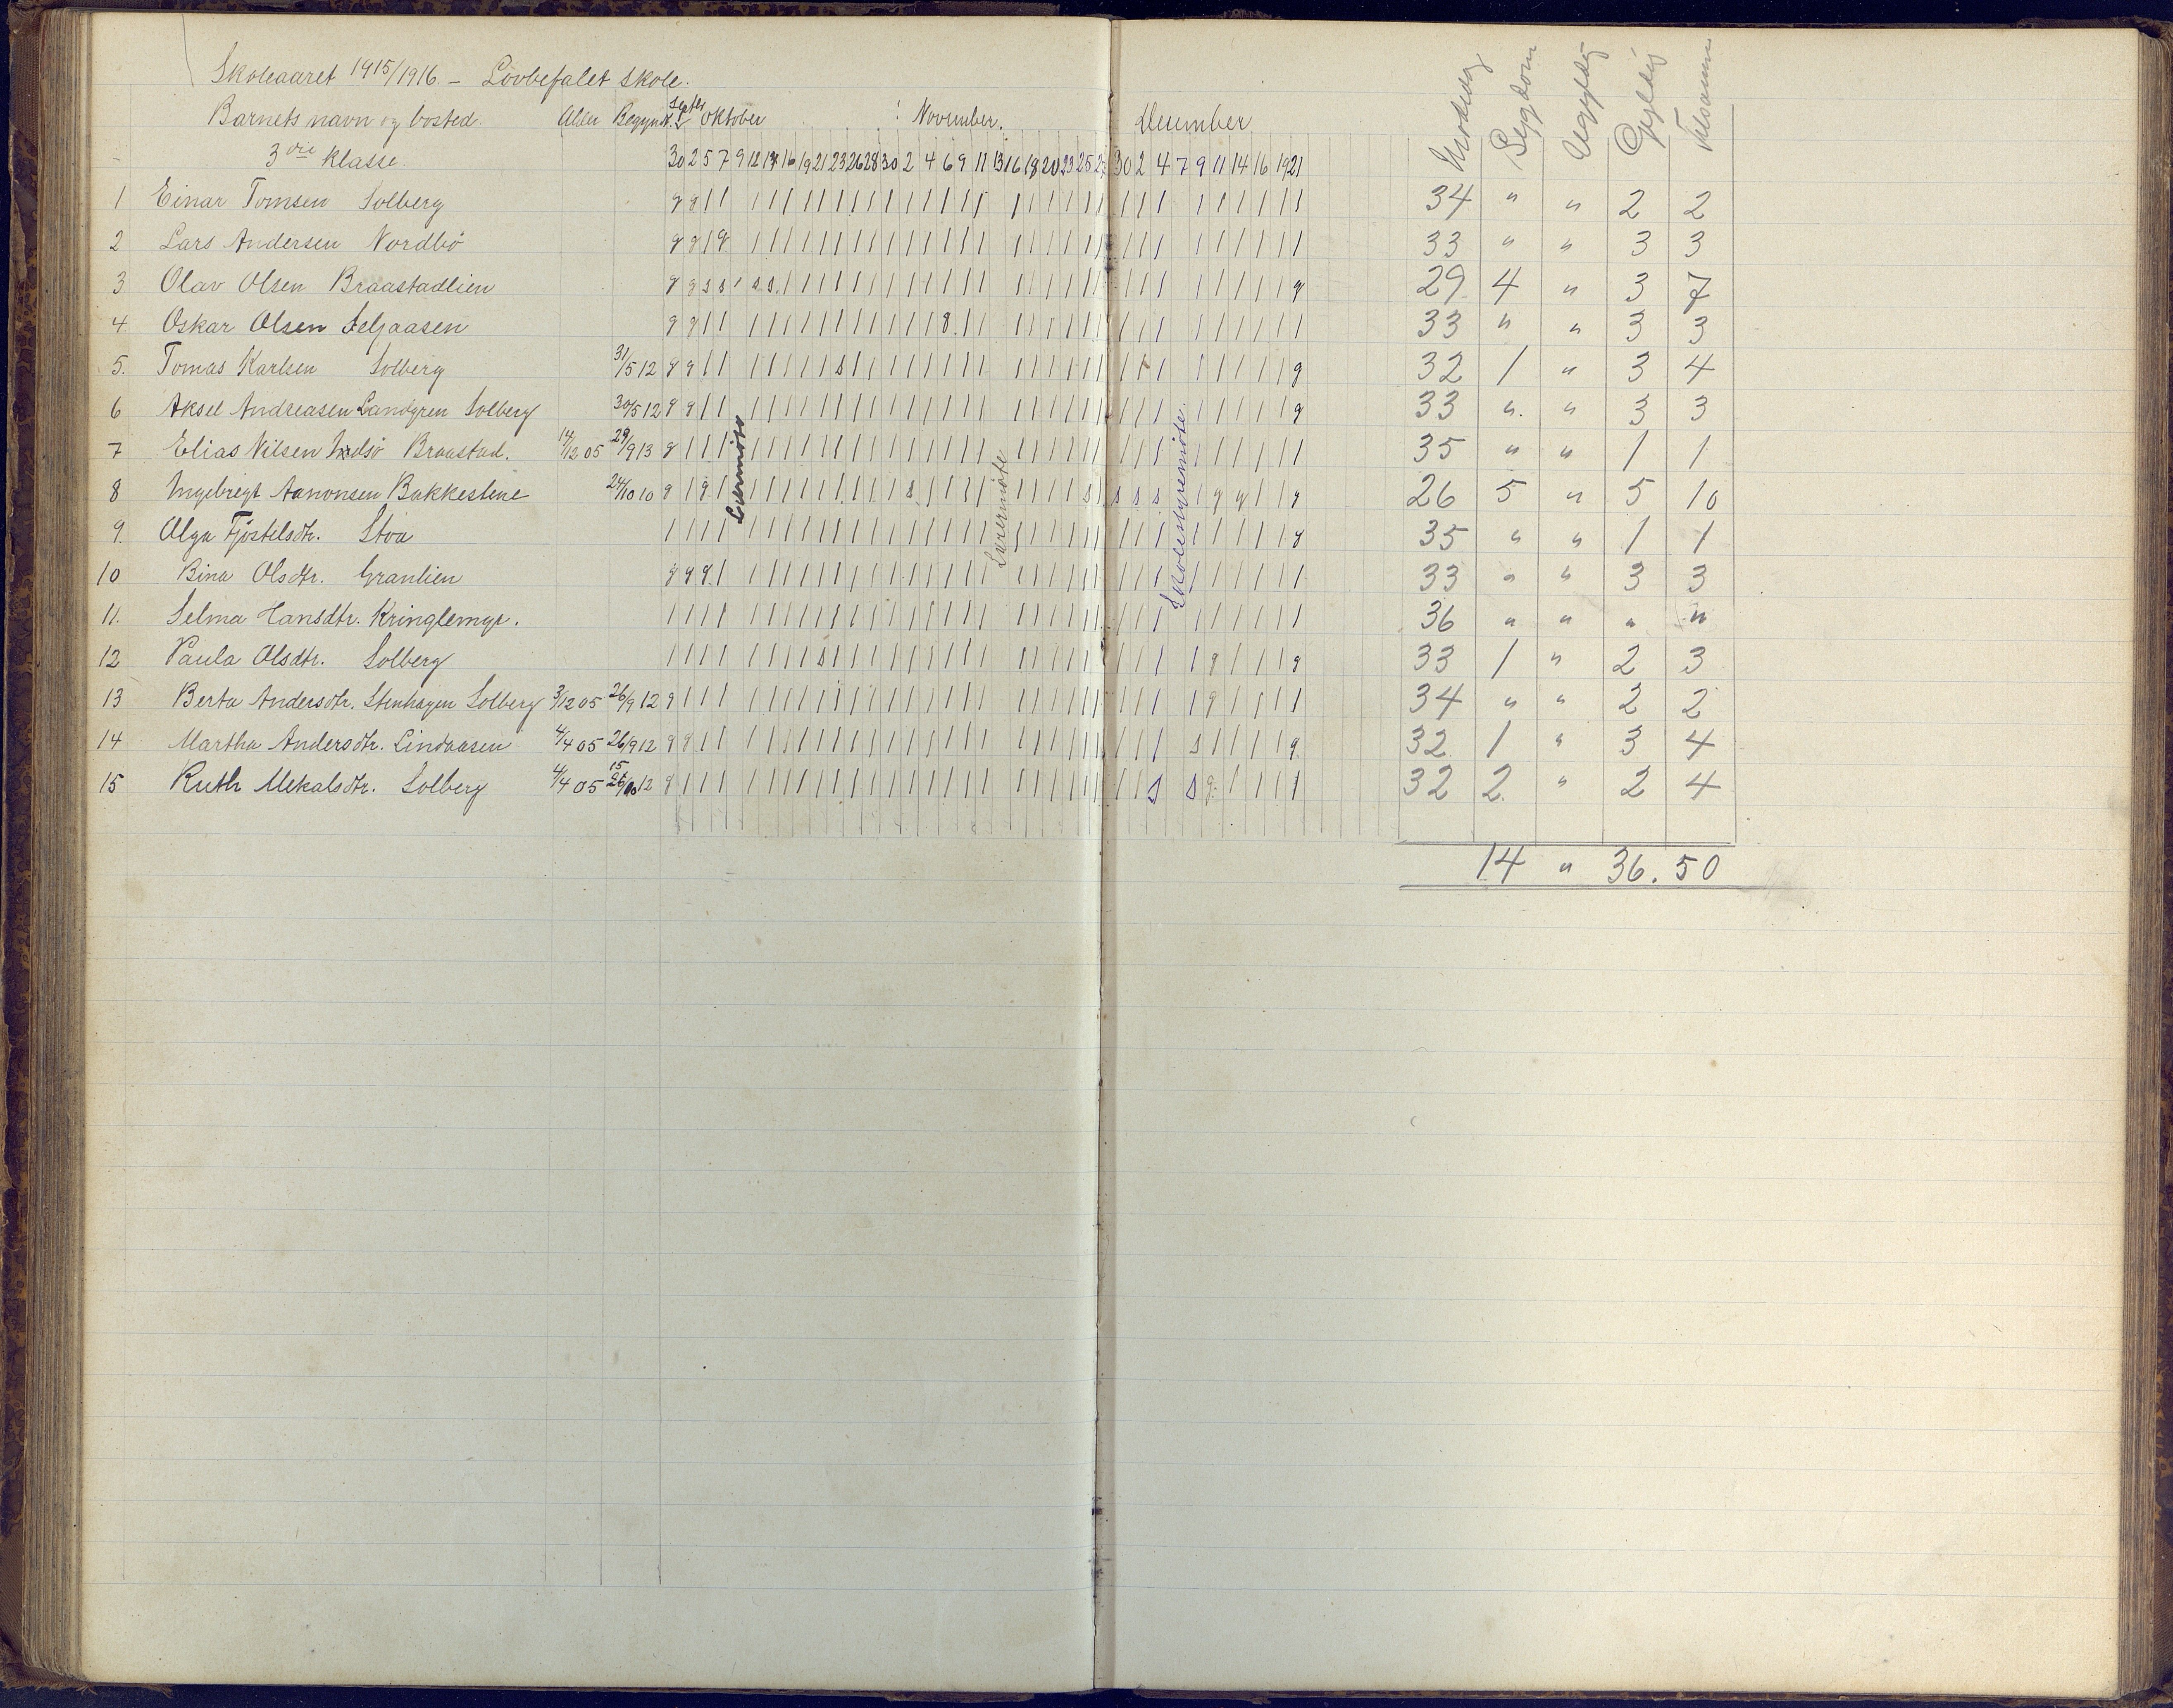 Skoleaaret 1915/1916. – Lovbefalet skole.
Barnets navn og bosted. Alder Begynt. Septbr Oktober November. December Sygdom Ugyldig Gyldig Tilsammen
3die klasse. 30 2 5 7 9 12 14 16 19 21 23 26 28 30 2 4 6 9 11 13 16 18 20 23 25 27 30 2 4 7 9 11 14 16 19 21
1 Einar Tomsen Solberg g g 34 " " 2 2
2 Lars Andersen Nordbö g g g 33 " " 3 3
3 Olav Olsen Braastadlien g g s s s s g 29 4 " 3 7
4 Oskar Olsen Seljaasen g g g 33 " " 3 3
5. Tomas Karlsen Solberg 31/5 12 g g s g 32 1 " 3 4
6 Aksel Andreasen Landgren Solberg 30/5 12 g g g 33 " " 3 3
7 Elias Nilsen Braastad. 14/12 05 29/9 13 g 35 " " 1 1
8 Ingebregt Aanonsen Bakkestene 24/10 10 g g s s s s s g g g 26 5 " 5 10
9. Olga Fjöstelsdtr. Stoa g 35 " " 1 1
10 Bina Olsdtr. Granlien g g g 33 " " 3 3
11. Selma Hansdtr. Kringlemyr. 36 " " " "
12 Paula Olsdtr. Solberg s g g 33 1 " 2 3
13 Berta Andersdtr. Stenhagen Solberg 3/12 05 26/9 12 g g 34 " " 2 2
14 Martha Andersdtr. Lindaasen 4/4 05 26/9 12 g g s g 32 1 " 3 4
15 Ruth Mekalsdtr. Solberg 4/4 05 15/10 12 g s s g 32 2 " 2 4
Lærermöte
Lærermöte
Skolestyremöte.
14 " 36. 50